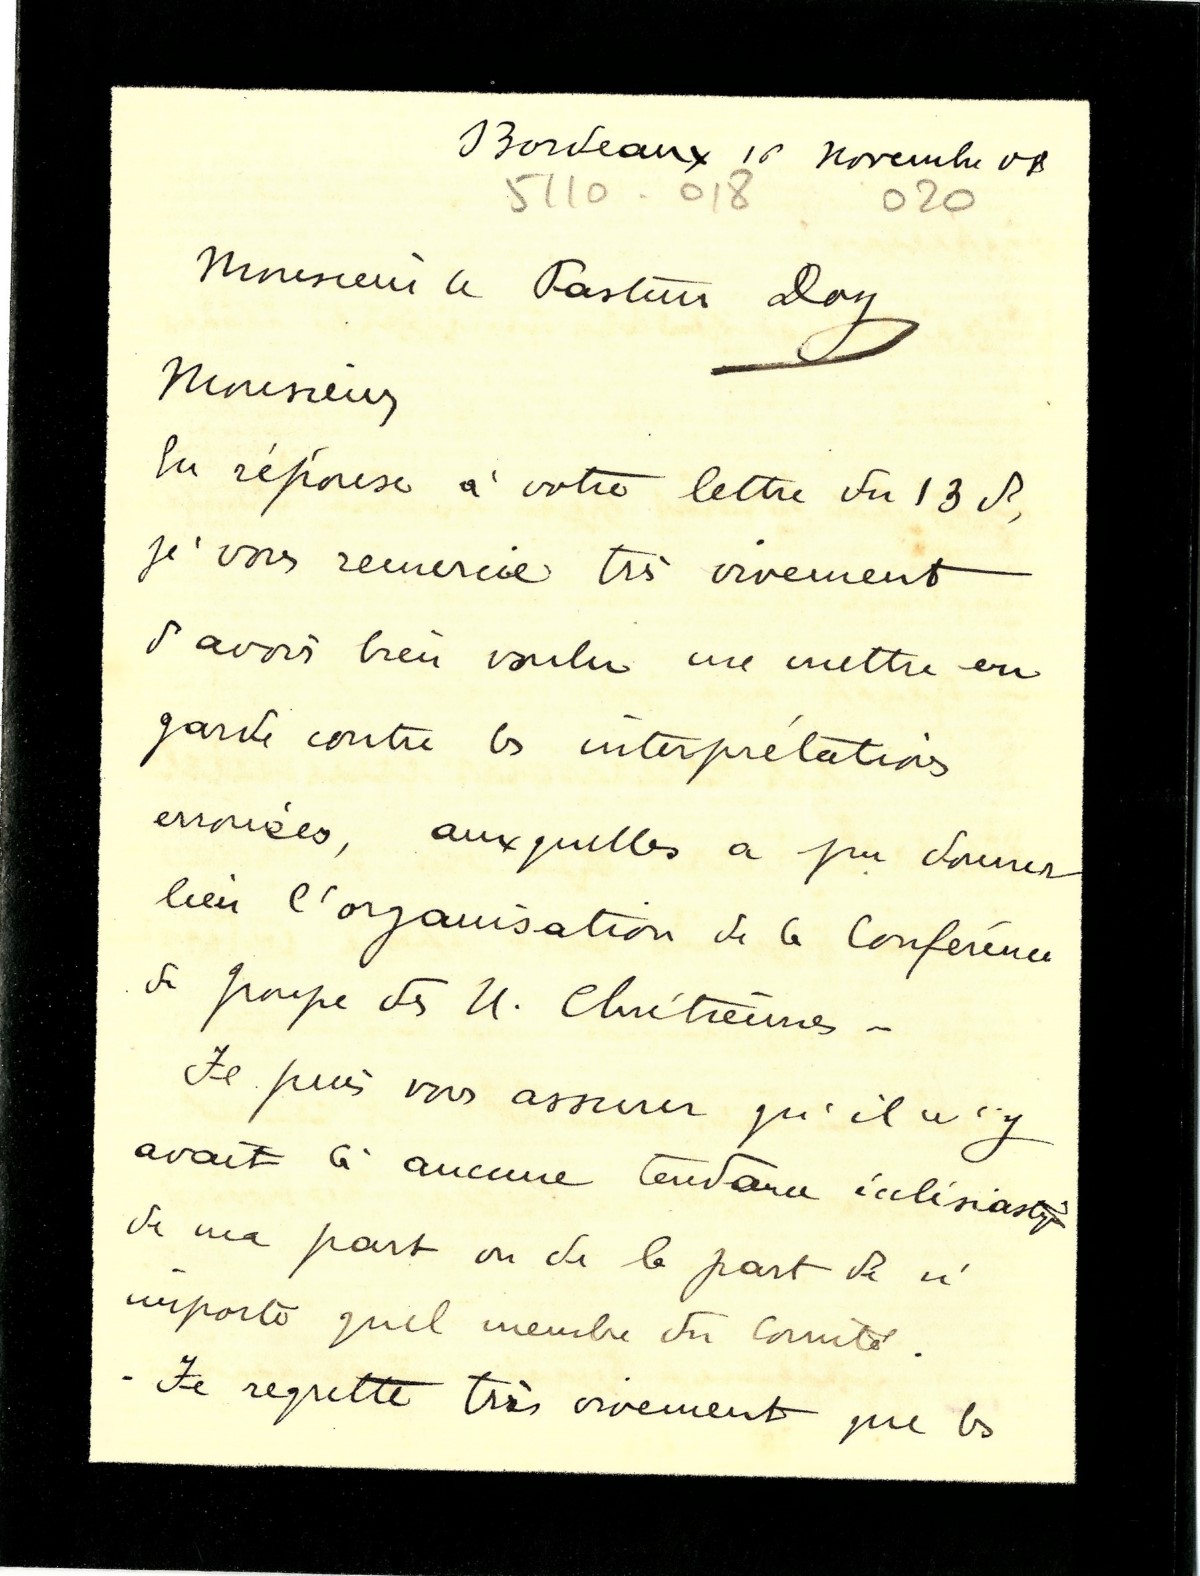 Bordeaux 16 Novembre 08
5110 - 018 020
Monsieur le Pasteur Doy
Monsieur
En réponse à votre lettre du 13 ct,
je vous remercie très vivement
d'avoir bien voulu me mettre en
garde contre les interprétations
erronées, auxquelles a pu donner
lieu l'organisation de la Conférence
de groupe des U. Chrétiennes -
Je puis vous assurer qu'il n'y
avait là aucune tendance écclésiastiq
de ma part ou de la part de n'
importe quel membre du Comité.
- Je regrette très vivement que les